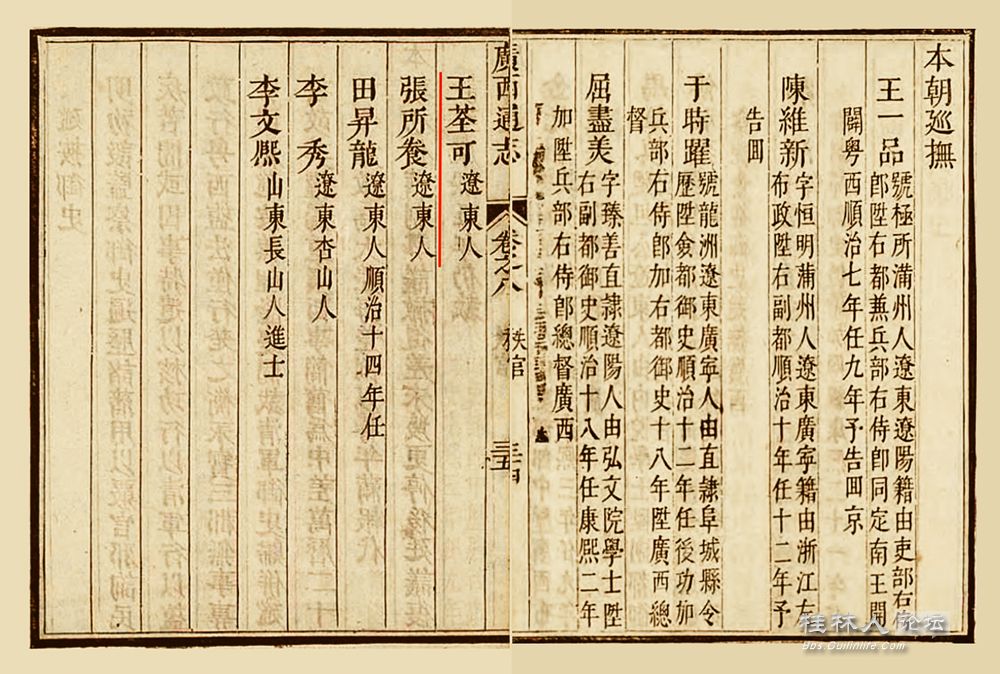 本朝廵撫
王一品號極所蒲州人遼東遼陽籍由吏部右
郎陞右都兼兵部右侍郎同定南王開
闢粤西順治七年任九年予告囬京
陳維新字恒明蒲州人遼東廣寧籍由浙江左
布政陞右副都順治十年任十二年予
告囬
于時躍號龍洲遼東廣寧人由直隷阜城縣令
歷陞僉都御史順治十二年任後功加
兵部右侍郎加右都御史十八年陞廣西總
督
屈盡美字臻善直隷遼陽人由弘文院學士陞
右副都御史順治十八年任康熙二年
加陞兵部右侍郎總督廣西
廣西通志
卷之八
秩官
王荃可遼東人
張所養遼東人
田昇龍遼東人順治十四年任
李秀遼東杏山人
李文熙山東長山人進士
桂林人论坛
bbs.Guilinlife.Com